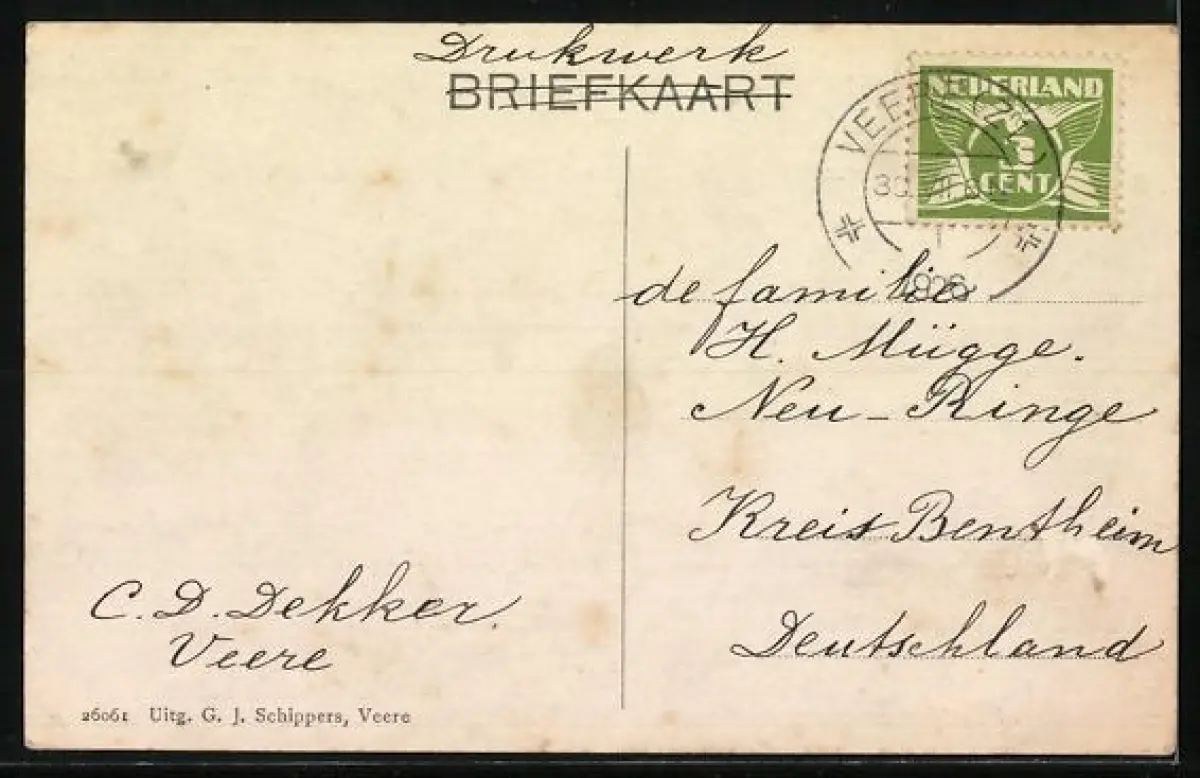 Drukwerk
BRIEFKAART
NEDERLAND
3
CENT
VEERE
1926
de familie
H. Mügge.
Neu-Ringe
Kreis Bentheim
Deutschland
C. D. Dekker.
Veere
26061 Uitg. G. J. Schippers, Veere